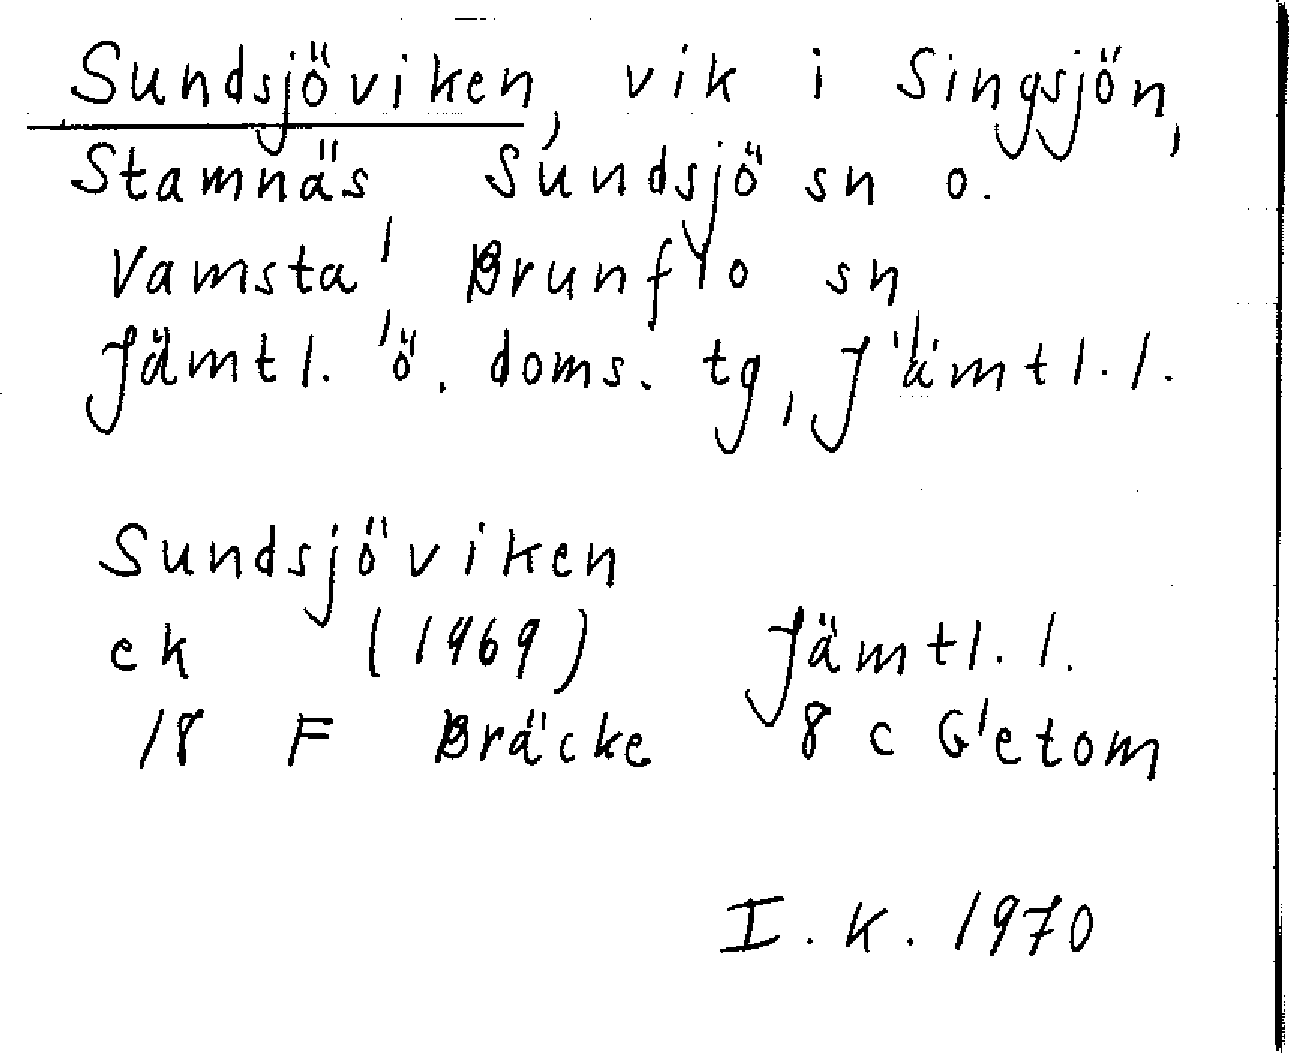 Sundsjöviken, vik i Singsjön,
Stamnäs, Sundsjö sn o.
Vamsta, Brunflo sn,
Jämtl. ö. doms. tg, Jämtl. l.
Sundsjöviken
ek (1969) Jämtl. l.
18 F Bräcke 8 c Getom
I. K. 1970